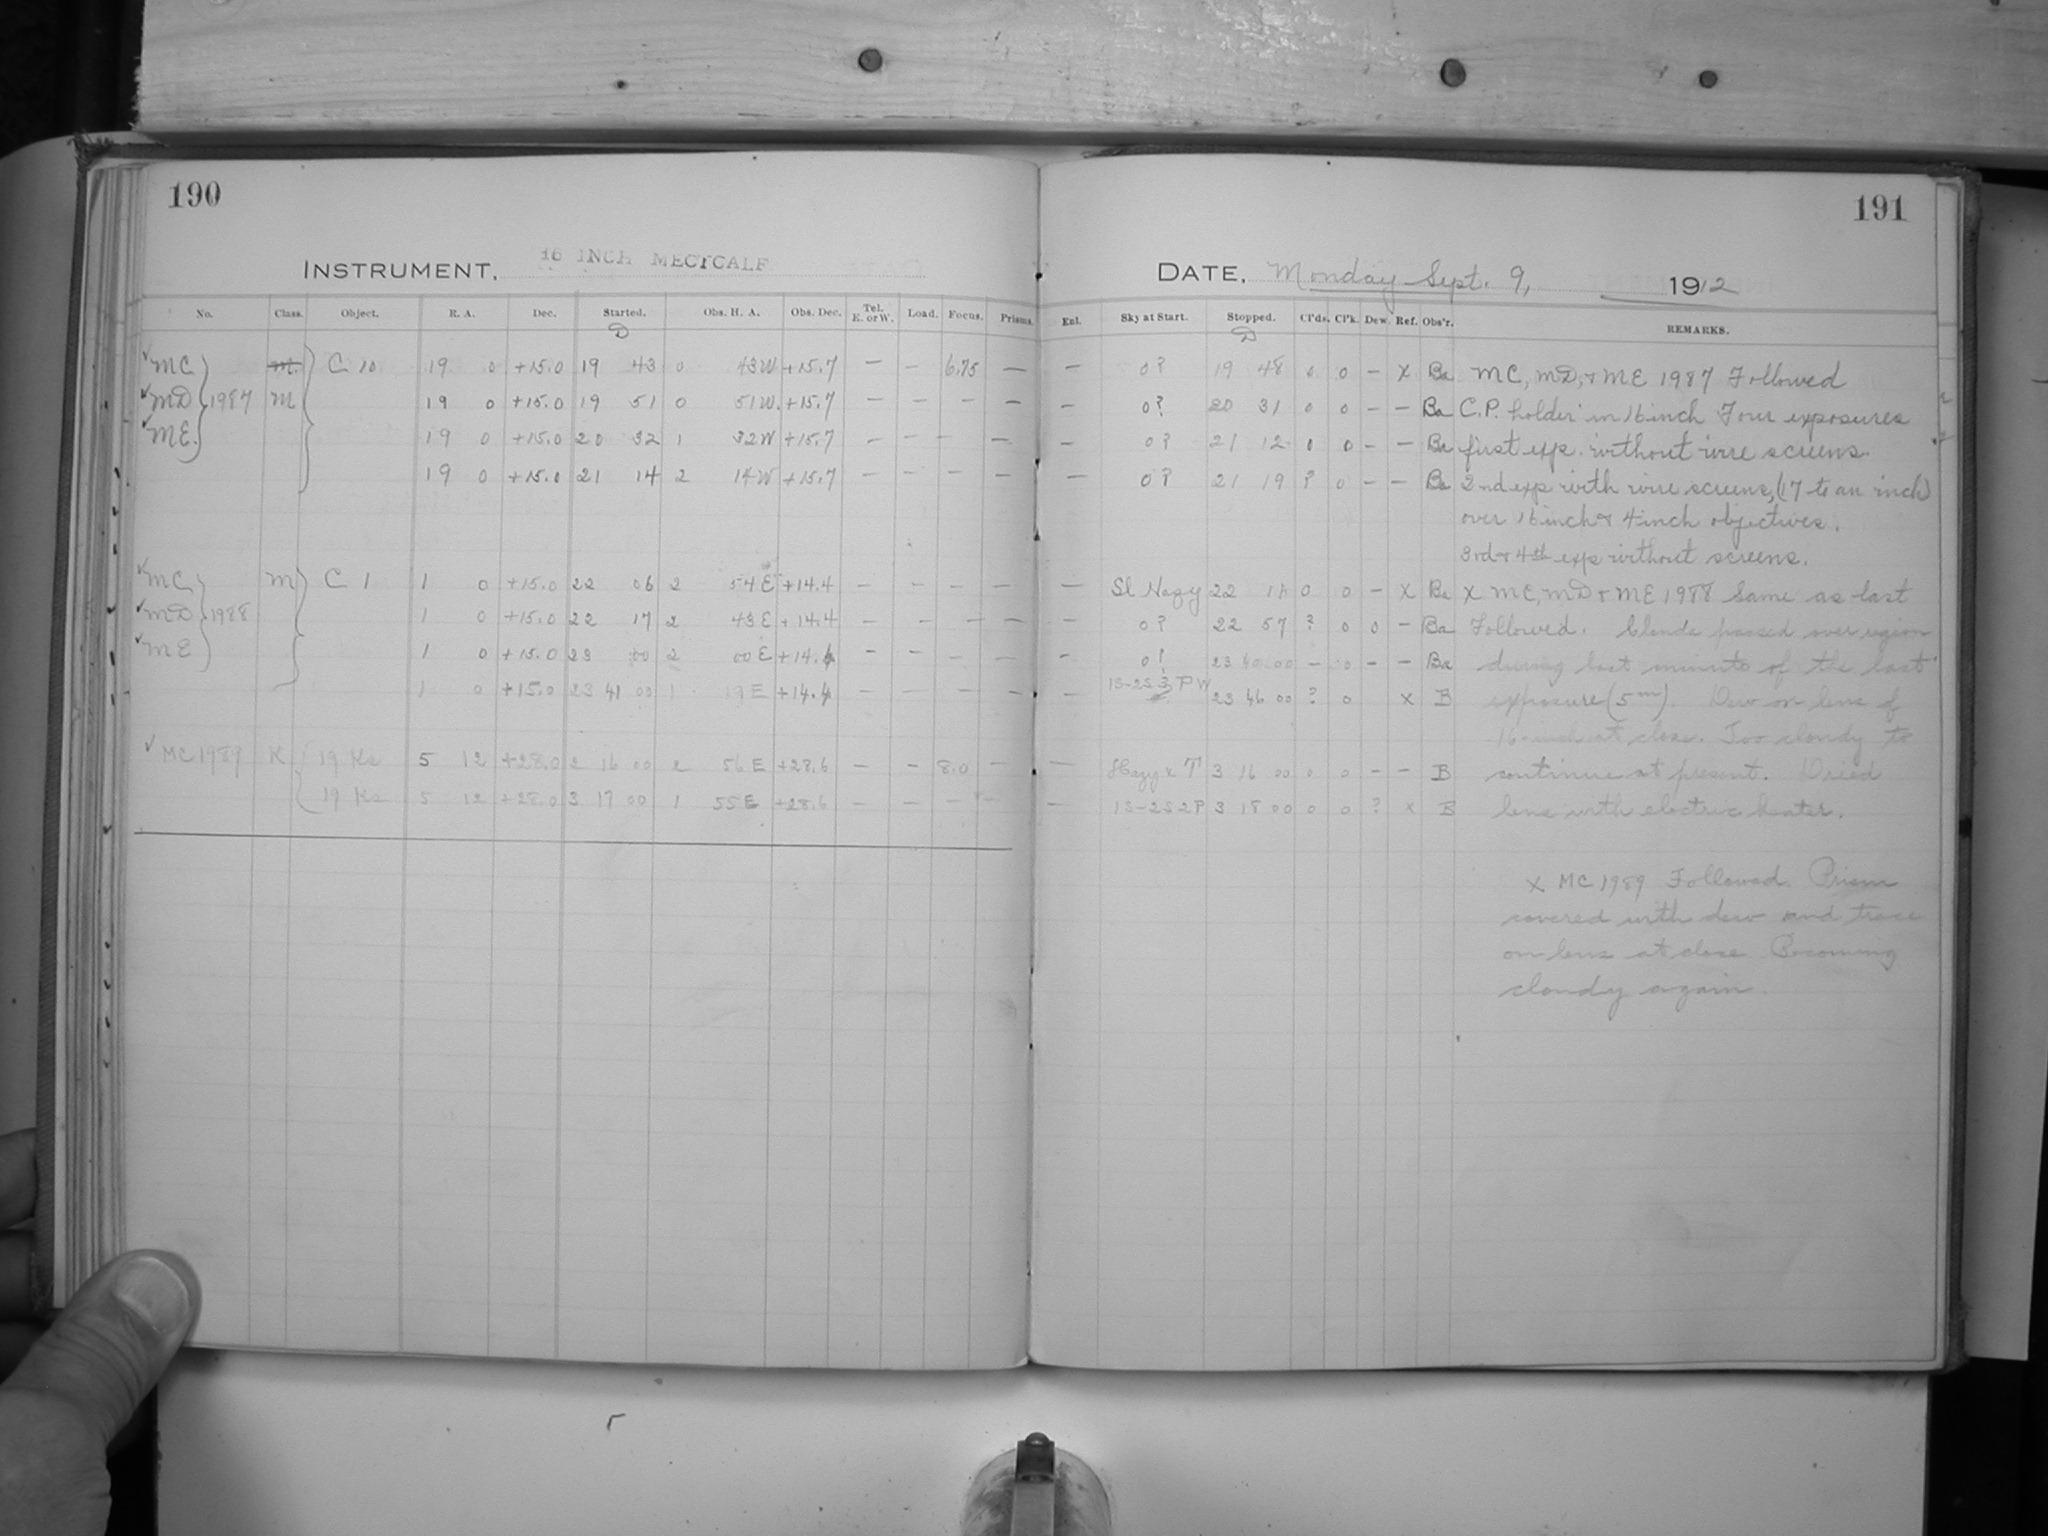 190
191
INSTRUMENT, 16 INCH METCALF
DATE, Monday Sept. 9, 1912
No. Class. Object. R. A. Dec. Started. Obs. H. A. Obs. Dec. Tel. E. or W. Load. Focus. Prisms. Enl. Sky at Start. Stopped. Cl'ds. Cl'k. Dew. Ref. Obs'r. REMARKS.
D D
✓MC } M. C 10 19 0 +15.0 19 43 0 43W +15.7 — — 6.75 — — 0? 19 48 0 0 — X Ba MC, MD, & ME 1987 Followed
✓MD } 1987 M 19 0 +15.0 19 51 0 51W. +15.7 — — — — — 0? 20 31 0 0 — — Ba C.P. holder in 16 inch Four exposures
✓ME. } 19 0 +15.0 20 32 1 32W +15.7 — — — — — 0? 21 12 0 0 — — Ba first exp. without wire screens.
19 0 +15.0 21 14 2 14W +15.7 — — — — — 0? 21 19 ? 0 — — Ba 2nd exp with wire screens, (17 to an inch)
over 16 inch & 4 inch objectives.
3rd & 4th exp without screens.
✓MC } M C 1 1 0 +15.0 22 06 2 54 E +14.4 — — — — — Sl Hazy 22 11 0 0 — X Ba X MC, MD & ME 1988 Same as last
✓MD } 1988 1 0 +15.0 22 17 2 43 E +14.4 — — — — — 0? 22 57 ? 0 0 — Ba Followed. Clouds passed over region
✓ME } 1 0 +15.0 23 00 2 00 E +14.4 — — — — — 0? 23 40 00 — 0 — — Ba during last minute of the last
1 0 +15.0 23 41 00 1 19 E +14.4 — — — — — 1S-2S 3 P W 23 46 00 ? 0 X B exposure (5m). Dew on lens of
16-inch at close. Too cloudy to
✓MC 1989 K { 19 Ks 5 12 +28.0 2 16 00 2 56 E +28.6 — — 8.0 — — Hazy x T 3 16 00 0 0 — — B continue at present. Dried
19 Ks 5 12 +28.0 3 17 00 1 55 E +28.6 — — — — — 1S-2S2P 3 18 00 0 0 ? X B lens with electric heater.
X MC 1989 Followed. Prism
covered with dew and trace
on lens at close Becoming
cloudy again.